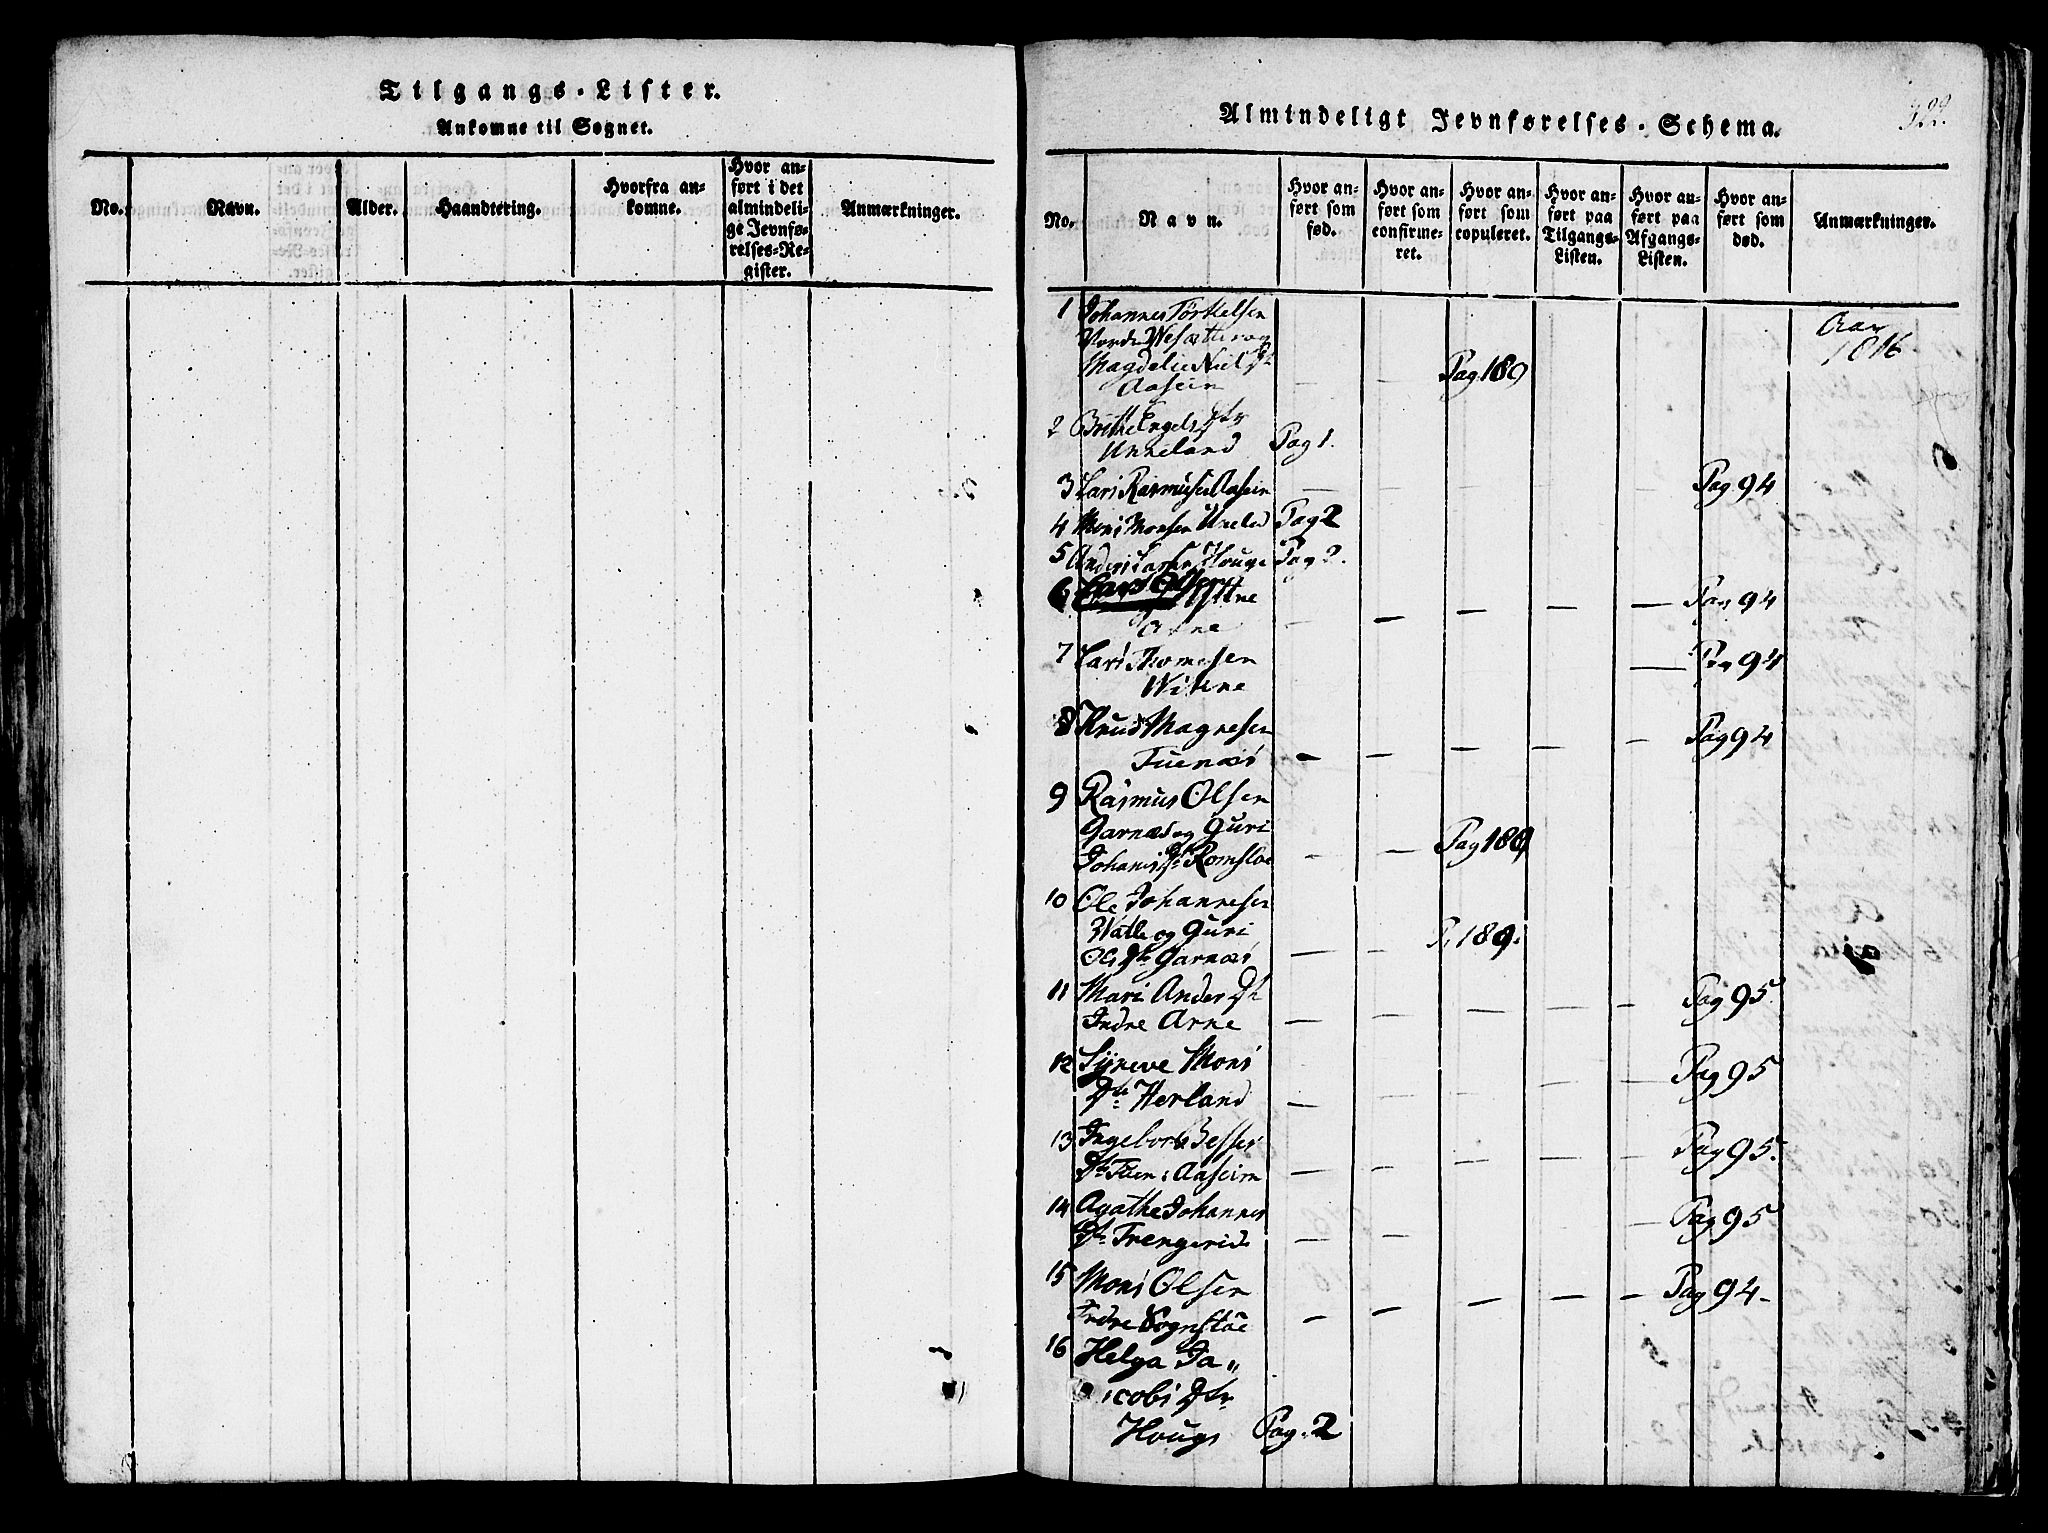 Tilgangs-Lister.
Ankomne til Sognet.
No.
Navn.
Alder.
Haandtering.
Hvorfra an-
komne.
Hvor an-
ført i det
almindeli-
ge Jevnfø-
relses-Re-
gister.
Anmærkninger.
Almindeligt Jevnførelses-Schema.
No.
Navn.
Hvor an-
ført som
fød.
Hvor an-
ført som
confirme-
ret.
Hvor an-
ført som
copuleret.
Hvor an-
ført paa
Tilgangs-
Listen.
Hvor an-
ført paa
Afgangs-
Listen.
Hvor an-
ført som
død.
Anmærkninger.
1 Johannes Törkelsen
Magdelie Niels Dtr
Aaseim — — Pag 189
Aar
1816
2 Britte Engels Dtr
Unneland Pag 1.
3 Lars Rasmusen Aaseim — — — — — Pag 94
4 Mons Monsen Unneld Pag 2
5 Anders Larsen Houge Pag 2.
6 Lars Olsen Yttre
Arne — — — — — Pag 94
7 Lars Thomesen
Wikne — Pag 94
8 Knud Magnesen
Tuenæs — — — — — Pag 94
9 Rasmus Olsen
Garnæs og Guri
Johanes Dtr Romsloe — — Pag 189
10 Ole Johannesen
Watle og Guri
Ols Dtr Garnæs — — P. 189.
11 Mari Anders Dtr
Indre Arne — — — — — Pag 95.
12 Syneve Mons
Dtr Herland — — — — — Pag 95
13 Ingebor Besse
Dtr Tuen: Aaseim — — — — — Pag 95.
14 Agathe Johannes
Dtr Trengerid — — — Pag 95
15 Mons Olsen
Indre Sognstöe — — — — — Pag 94-
16 Helga Ja„
cobs Dtr
Houge Pag. 2